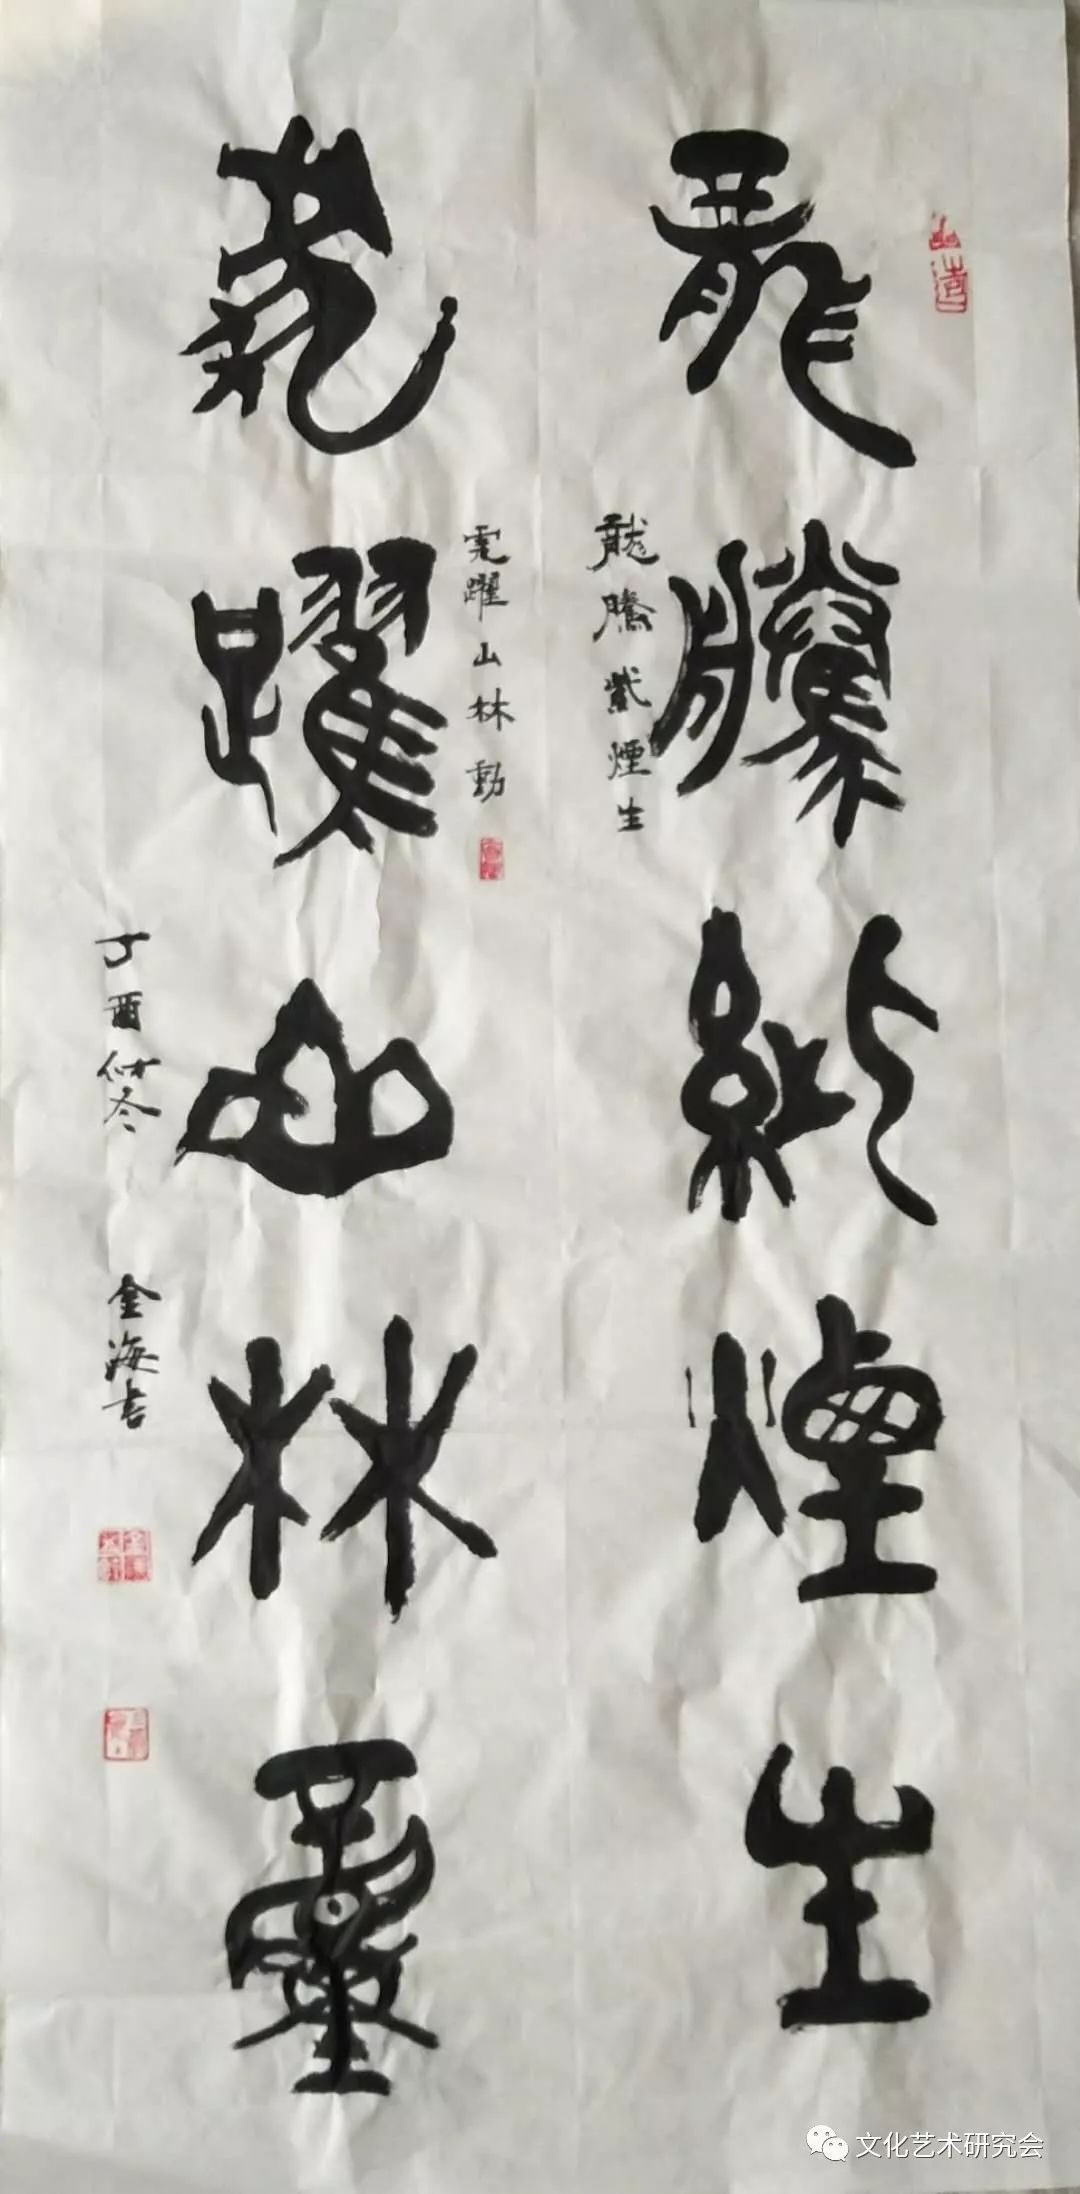 龍騰紫煙生
龍騰紫煙生
虎躍山林動
虎躍山林動
丁酉仲冬 金海書
文化艺术研究会